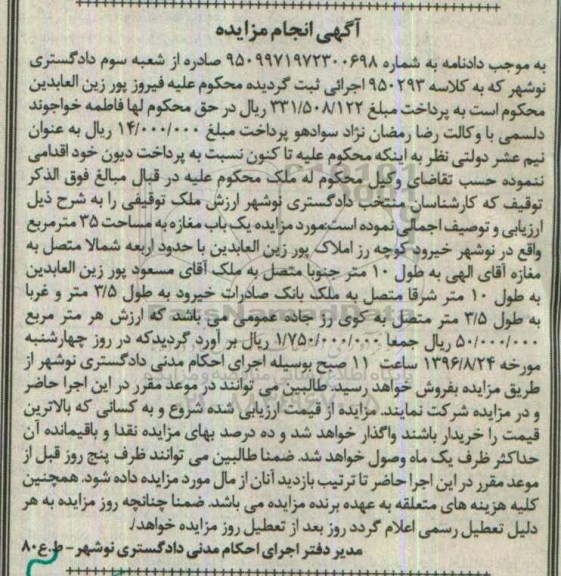 آگهی انجام مزایده
به موجب دادنامه به شماره ۹۵۰۹۹۷۱۹۷۲۳۰۰۶۹۸ صادره از شعبه سوم دادگستری
نوشهر که به کلاسه ۹۵۰۲۹۳ اجرائی ثبت گردیده محکوم علیه فیروز پور زین العابدین
محکوم است به پرداخت مبلغ ۳۳۱/۵۰۸/۱۲۲ ریال در حق محکوم لها فاطمه خواجوند
دلسمی با وکالت رضا رمضان نژاد سوادهو پرداخت مبلغ ۱۴/۰۰۰/۰۰۰ ریال به عنوان
نیم عشر دولتی نظر به اینکه محکوم علیه تا کنون نسبت به پرداخت دیون خود اقدامی
ننموده حسب تقاضای وکیل محکوم له ملک محکوم علیه در قبال مبالغ فوق الذکر
توقیف که کارشناسان منتخب دادگستری نوشهر ارزش ملک توقیفی را به شرح ذیل
ارزیابی و توصیف اجمالی نموده است:مورد مزایده یک باب مغازه به مساحت ۳۵ مترمربع
واقع در نوشهر خیرود کوچه رز املاک پور زین العابدین با حدود اربعه شمالا متصل به
مغازه آقای الهی به طول ۱۰ متر جنوبا متصل به ملک آقای مسعود پور زین العابدین
به طول ۱۰ متر شرقا متصل به ملک بانک صادرات خیرود به طول ۳/۵ متر و غربا
به طول ۳/۵ متر متصل به کوی رز جاده عمومی می باشد که ارزش هر متر مربع
۵۰/۰۰۰/۰۰۰ ریال جمعا ۱/۷۵۰/۰۰۰/۰۰۰ ریال بر آورد گردیدکه در روز چهارشنبه
مورخه ۱۳۹۶/۸/۲۴ ساعت ۱۱ صبح بوسیله اجرای احکام مدنی دادگستری نوشهر از
طریق مزایده بفروش خواهد رسید. طالبین می توانند در موعد مقرر در این اجرا حاضر
و در مزایده شرکت نمایند. مزایده از قیمت ارزیابی شده شروع و به کسانی که بالاترین
قیمت را خریدار باشند واگذار خواهد شد و ده درصد بهای مزایده نقدا و باقیمانده آن
حداکثر ظرف یک ماه وصول خواهد شد. ضمنا طالبین می توانند ظرف پنج روز قبل از
موعد مقرر در این اجرا حاضر تا ترتیب بازدید آنان از مال مورد مزایده داده شود. همچنین
کلیه هزینه های متعلقه به عهده برنده مزایده می باشد. ضمنا چنانچه روز مزایده به هر
دلیل تعطیل رسمی اعلام گردد روز بعد از تعطیل روز مزایده خواهد/.
مدیر دفتر اجرای احکام مدنی دادگستری نوشهر - ط.ع۸۰